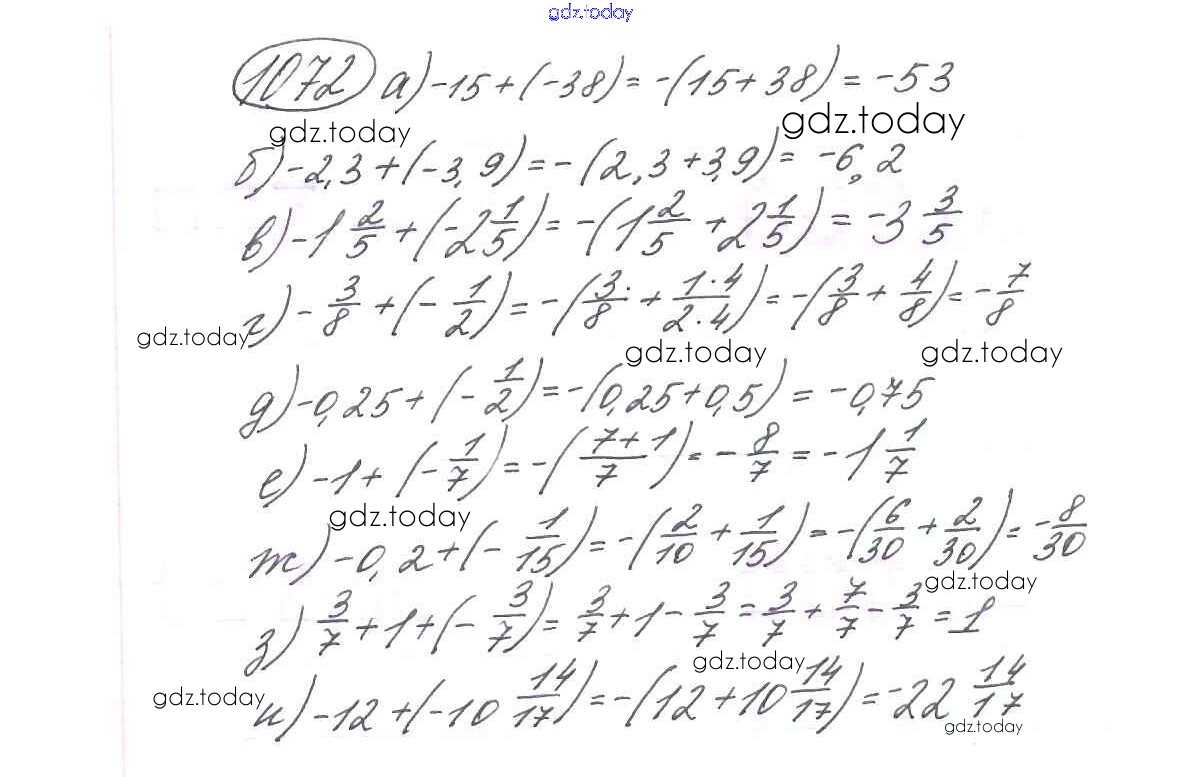 gdz.today
1072 а) -15 + (-38) = -(15 + 38) = -53
gdz.today gdz.today
б) -2,3 + (-3,9) = -(2,3 + 3,9) = -6,2
в) -1 2/5 + (-2 1/5) = -(1 2/5 + 2 1/5) = -3 3/5
г) -3/8 + (-1/2) = -(3/8 + 1·4/2·4) = -(3/8 + 4/8) = -7/8
gdz.today gdz.today gdz.today
д) -0,25 + (-1/2) = -(0,25 + 0,5) = -0,75
е) -1 + (-1/7) = -(7+1/7) = -8/7 = -1 1/7
gdz.today
ж) -0,2 + (-1/15) = -(2/10 + 1/15) = -(6/30 + 2/30) = -8/30
gdz.today
з) 3/7 + 1 + (-3/7) = 3/7 + 1 - 3/7 = 3/7 + 7/7 - 3/7 = 1
gdz.today gdz.today
и) -12 + (-10 14/17) = -(12 + 10 14/17) = -22 14/17
gdz.today